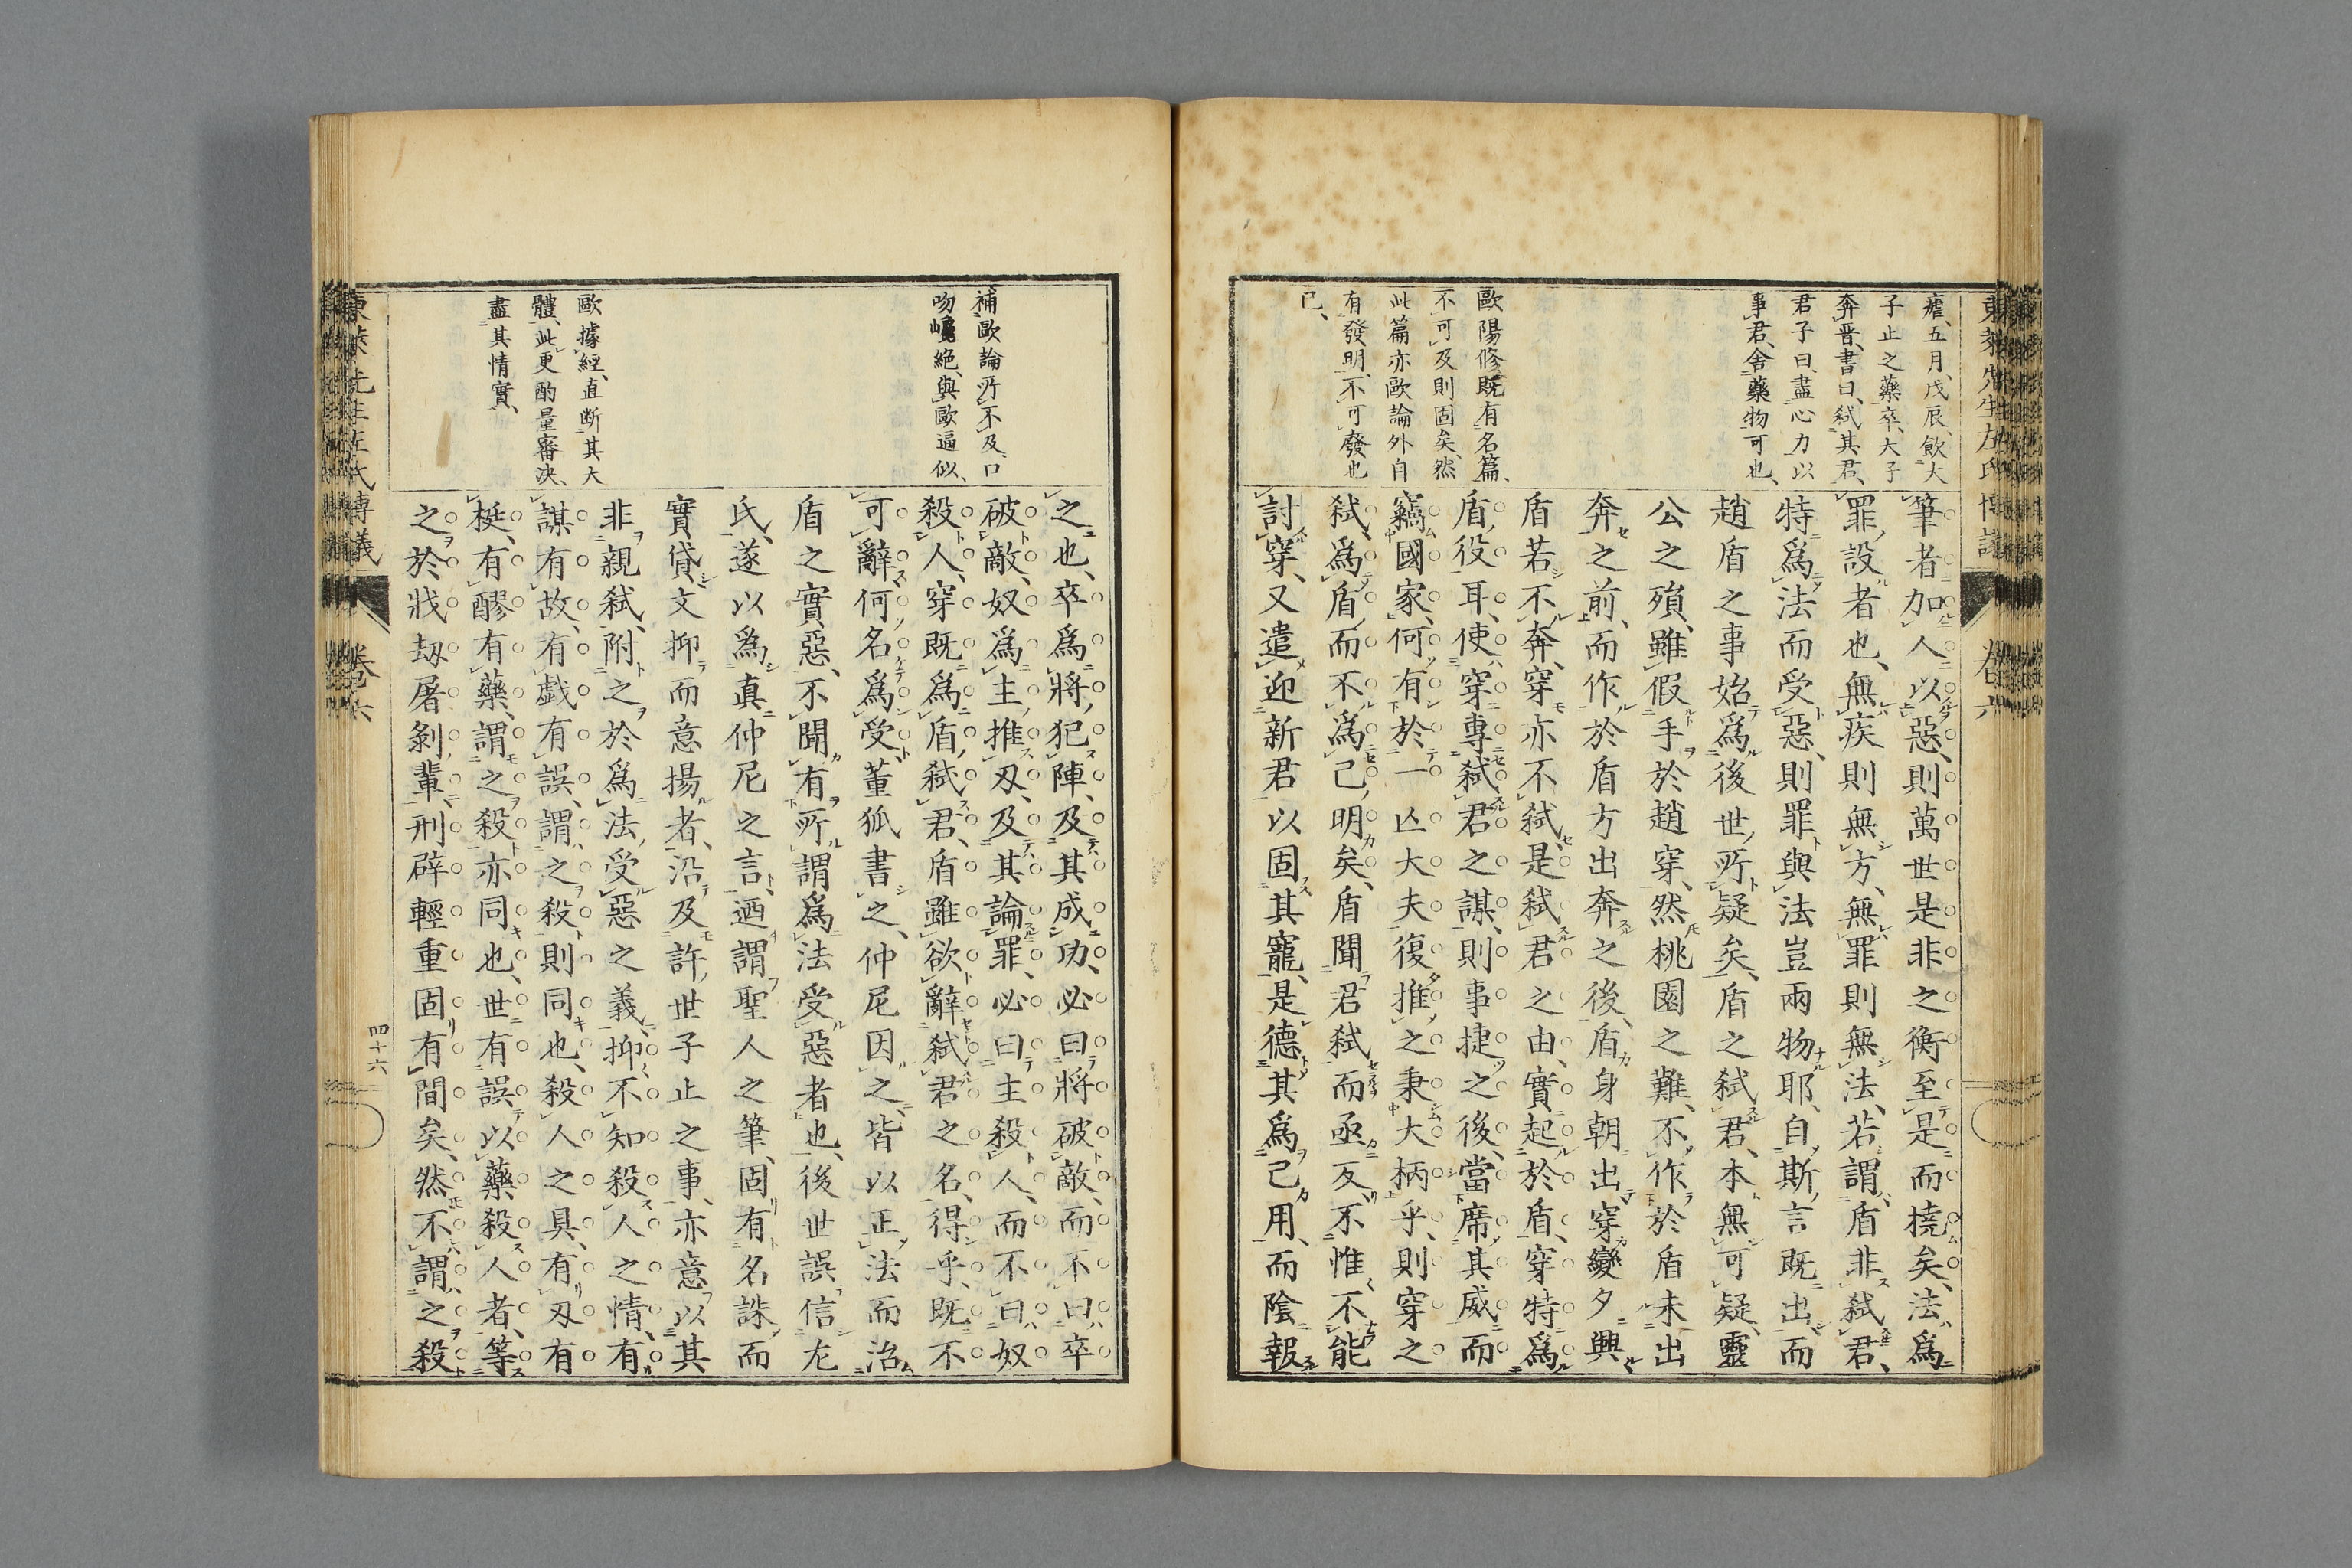 東萊先生左氏博議
卷六
瘧、五月、戊辰、飲大
子止之藥卒、大子
奔晋、書曰、弑其君、
君子曰、盡心力以
事君、舍藥物可也、
歐陽修既有名篇、
不可及則固矣、然
此篇亦歐論外自
有發明、不可廢也
已、
筆者加人以惡、則萬世是非之衡至是而撓矣、法爲
罪設者也、無疾則無方、無罪則無法、若謂盾非弑君、
特爲法而受惡、則罪與法豈兩物耶、自斯言既出、而
趙盾之事始爲後世所疑矣、盾之弑君、本無可疑、靈
公之殞、雖假手於趙穿、然桃園之難、不作於盾未出
奔之前、而作於盾方出奔之後、盾身朝出穿變夕興
盾若不奔、穿亦不弑、是弑君之由、實起於盾、穿特爲
盾役耳、使穿專弑君之謀、則事捷之後、當席其威而
竊國家、何有於一亾大夫復推之秉大柄乎、則穿之
弑、爲盾而不爲己、明矣、盾聞君弑而亟反、不惟不能
討穿、又遣迎新君以固其寵、是德其爲己用、而陰報
補歐論所不及、口
吻巉絶、與歐逼似、
歐據經、直断其大
體、此更酌量審决、
盡其情實、
之也、卒爲將犯陣、及其成功、必曰將破敵、而不曰卒
破敵、奴爲主推刄、及其論罪、必曰主殺人、而不曰奴
殺人、穿既爲盾弑君、盾雖欲辭弑君之名、得乎、既不
可辭、何名爲受、董狐書之、仲尼因之、皆以正法而治
盾之實惡、不聞有所謂爲法受惡者也、後世誤信左
氏、遂以爲真仲尼之言、迺謂聖人之筆、固有名誅而
實貸、文抑而意揚者、沿及許世子止之事、亦意以其
非親弑、附之於爲法受惡之義、抑不知殺人之情、有
謀有故、有戯有誤、謂之殺則同也、殺人之具、有刄有
梃、有醪有藥、謂之殺亦同也、世有誤以藥殺人者、等
之於戕刼屠剝輩、刑辟輕重固有間矣、然不謂之殺
東萊先生左氏博議
卷六
四十六